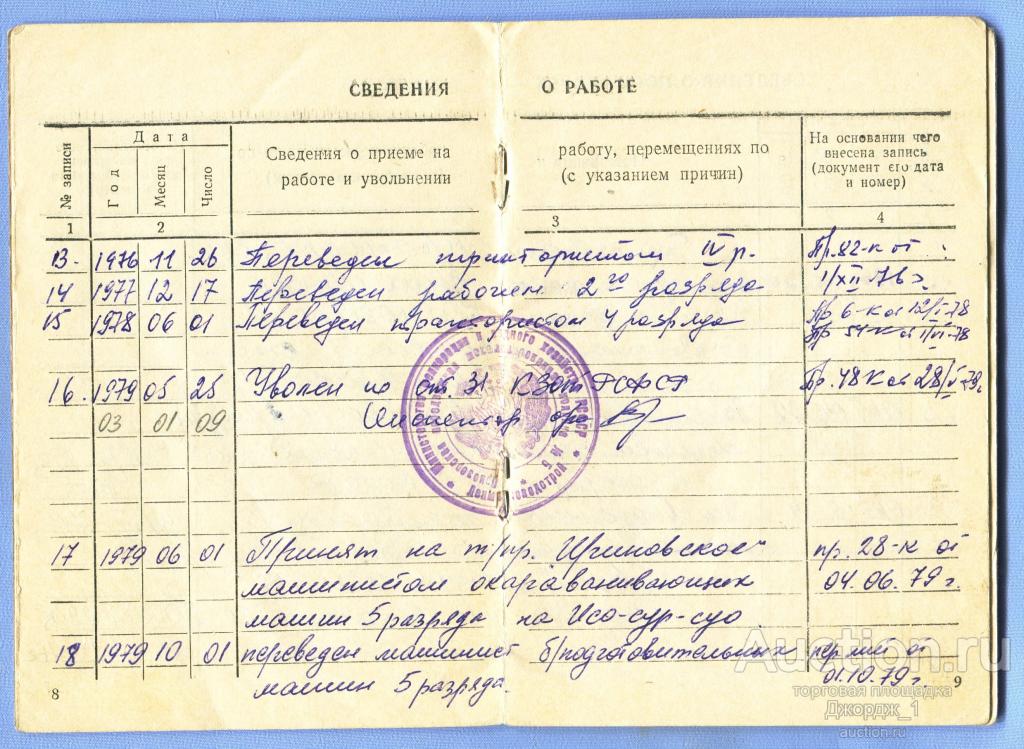 СВЕДЕНИЯ О РАБОТЕ
№ записи
Дата
Год
Месяц
Число
Сведения о приеме на работу, перемещениях по
работе и увольнении (с указанием причин)
На основании чего
внесена запись
(документ его дата
и номер)
1 2 3 4
13. 1976 11 26 Переведен трактористом IV р. Пр. 82-к от
1/XII-76г.
14 1977 12 17 Переведен рабочем 2го разряда Пр 6-к от 12/I-78
15 1978 06 01 Переведен трактористом 4 разряда Пр 54-к от 1/VI-78
16. 1979 05 25 Уволен по ст. 31 КЗОТ РСФСР Пр. 48к от 28/V-79г
03 01 09
17 1979 06 01 Принят на т/пр. Ириновское пр. 28-к от
машинистом окараванивающих 04.06.79г.
машин 5 разряда на
18 1979 10 01 переведен машинист б/подготовительных от
машин 5 разряда. 01.10.79г.
8 9
Auction.ru
торговая площадка
Джордж_1
auction.ru